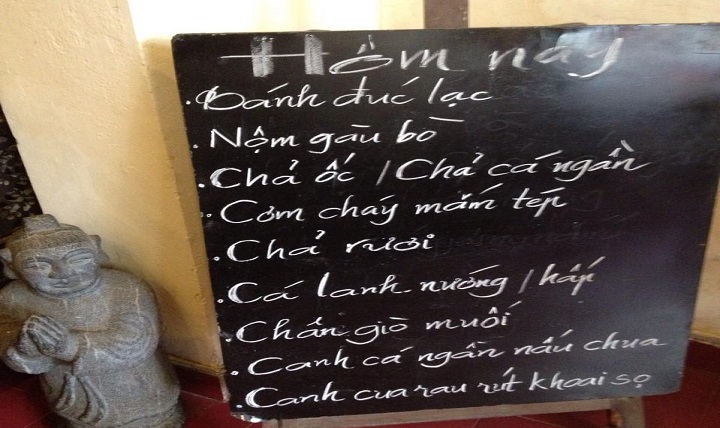 Hôm nay
Bánh đúc lạc
Nộm gàu bò
Chả ốc / Chả cá ngần
Cơm cháy mắm tép
Chả rươi
Cá lanh nướng / hấp
Chân giò muối
Canh cá ngần nấu chua
Canh cua rau rút khoai sọ